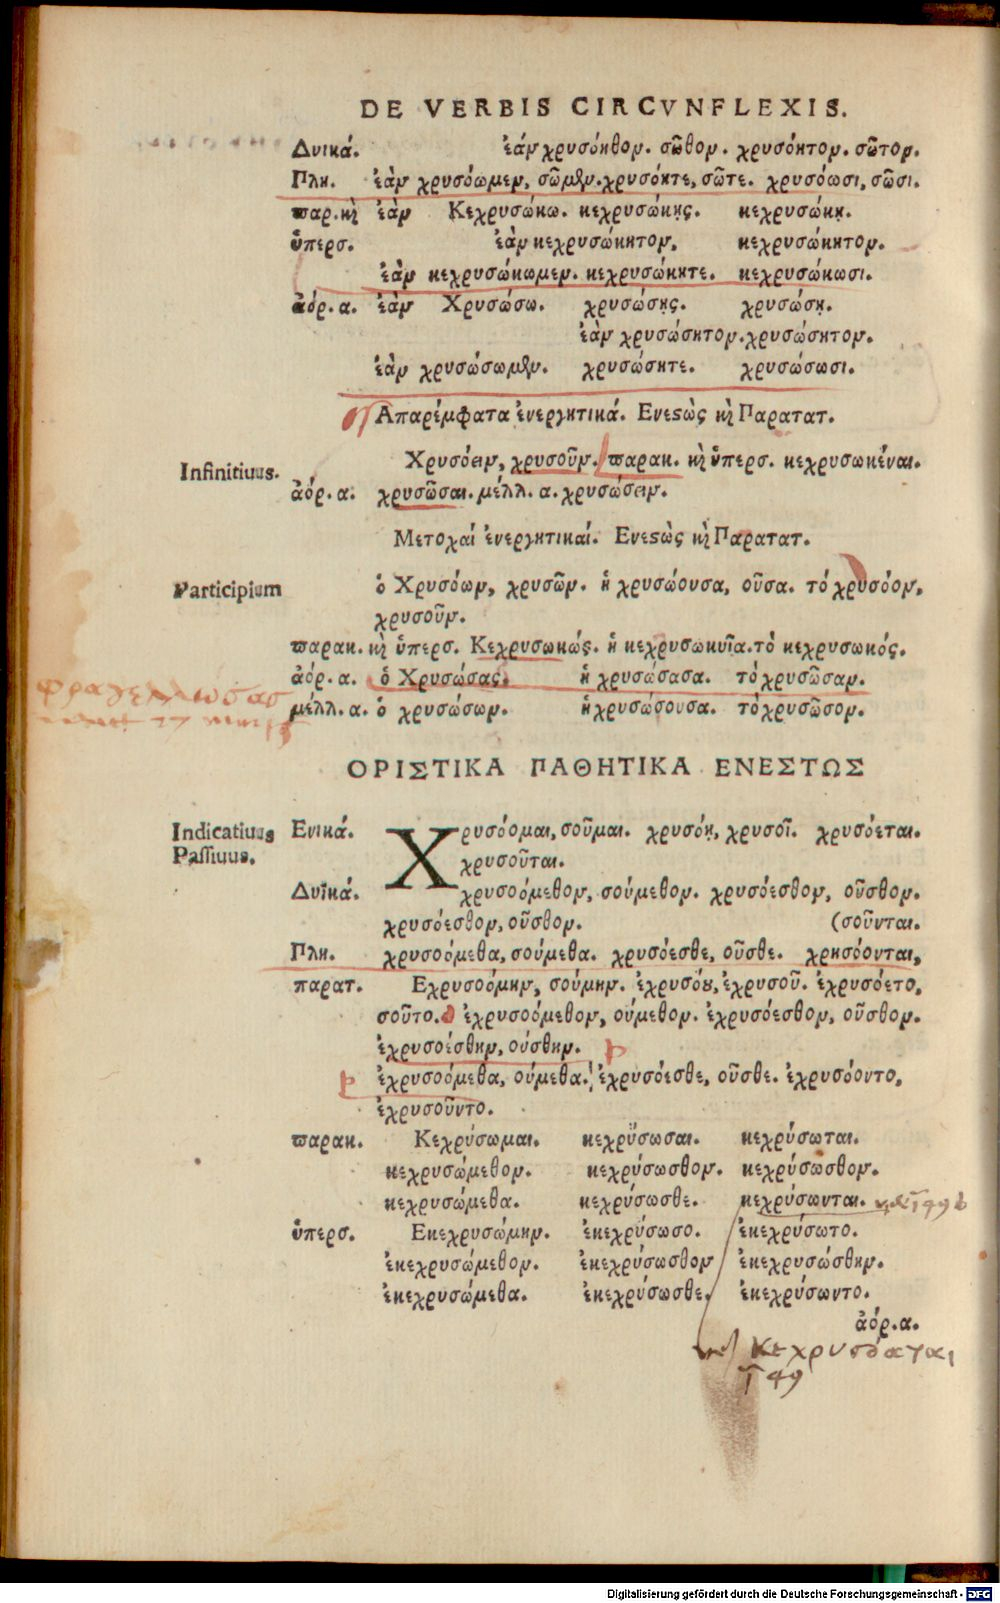 DE VERBIS CIRCVNFLEXIS.
Δυικά. ἐάν χρυσόηθον. σῶθον. χρυσόητον. σῶτον.
Πλη. ἐὰν χρυσόωμεν, σῶμεν. χρυσόητε, σῶτε. χρυσόωσι, σῶσι.
παρ. καὶ ἐὰν Κεχρυσώκω. κεχρυσώκῃς. κεχρυσώκῃ.
ὑπερσ. ἐὰν κεχρυσώκητον, κεχρυσώκητον.
ἐὰν κεχρυσώκωμεν. κεχρυσώκητε. κεχρυσώκωσι.
ἀόρ. α. ἐὰν Χρυσώσω. χρυσώσῃς. χρυσώσῃ.
ἐὰν χρυσώσητον. χρυσώσητον.
ἐὰν χρυσώσωμεν. χρυσώσητε. χρυσώσωσι.
Απαρέμφατα ἐνεργητικά. Ενεϛὼς καὶ Παρατατ.
Χρυσόειν, χρυσοῦν. παρακ. καὶ ὑπερσ. κεχρυσωκέναι.
Infinitiuus.
ἀόρ. α. χρυσῶσαι. μέλλ. α. χρυσώσειν.
Μετοχαί ἐνεργητικαί. Ενεϛὼς καὶ Παρατατ.
Participium ὁ Χρυσόων, χρυσῶν. ἡ χρυσώουσα, οῦσα. τό χρυσόον,
χρυσοῦν.
παρακ. καὶ ὑπερσ. Κεχρυσωκώς. ἡ κεχρυσωκυῖα. τὸ κεχρυσωκός.
ἀόρ. α. ὁ Χρυσώσας. ἡ χρυσώσασα. τὸ χρυσῶσαν.
φραγελλώσας
μέλλ. α. ὁ χρυσώσων. ἡ χρυσώσουσα. τὸ χρυσῶσον.
ΟΡΙΣΤΙΚΑ ΠΑΘΗΤΙΚΑ ΕΝΕΣΤΩΣ
Indicatiuus Ενικά. Χρυσόομαι, σοῦμαι. χρυσόῃ, χρυσοῖ. χρυσόεται.
Passiuus. χρυσοῦται.
Δυϊκά. χρυσοόμεθον, σούμεθον. χρυσόεσθον, οῦσθον.
χρυσόεσθον, οῦσθον. (σοῦνται.
Πλη. χρυσοόμεθα, σούμεθα. χρυσόεσθε, οῦσθε. χρησόονται,
παρατ. Εχρυσοόμην, σούμην. ἐχρυσόȣ, ἐχρυσοῦ. ἐχρυσόετο,
σοῦτο. ἐχρυσοόμεθον, ούμεθον. ἐχρυσόεσθον, οῦσθον.
ἐχρυσοέσθην, ούσθην.
ἐχρυσοόμεθα, ούμεθα. ἐχρυσόεσθε, οῦσθε. ἐχρυσόοντο,
ἐχρυσοῦντο.
παρακ. Κεχρύσωμαι. κεχρύσωσαι. κεχρύσωται.
κεχρυσώμεθον. κεχρύσωσθον. κεχρύσωσθον.
κεχρυσώμεθα. κεχρύσωσθε. κεχρύσωνται.
ὑπερσ. Εκεχρυσώμην. ἐκεχρύσωσο. ἐκεχρύσωτο.
ἐκεχρυσώμεθον. ἐκεχρύσωσθον ἐκεχρυσώσθην.
ἐκεχρυσώμεθα. ἐκεχρύσωσθε. ἐκεχρύσωντο.
ἀόρ. α.
κεχρυσόαται
49
Digitalisierung gefördert durch die Deutsche Forschungsgemeinschaft - DFG